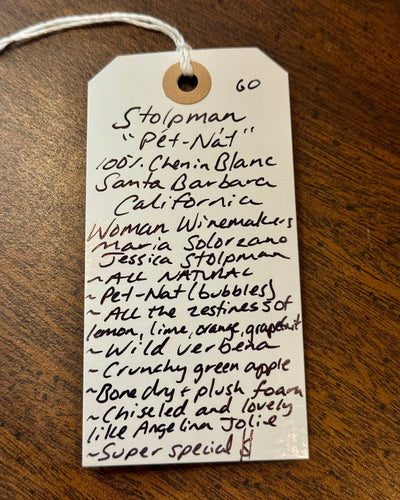 60
Stolpman
"Pét-Nát"
100% Chenin Blanc
Santa Barbara
California
Woman Winemakers
Maria Solorzano
Jessica Stolpman
~ALL NATURAL
~Pet-Nat (bubbles)
~ALL the zestiness of
lemon, lime, orange, grapefruit
~Wild verbena
~Crunchy green apple
~Bone dry + plush foam
~Chiseled and lovely
like Angelina Jolie
~Super special